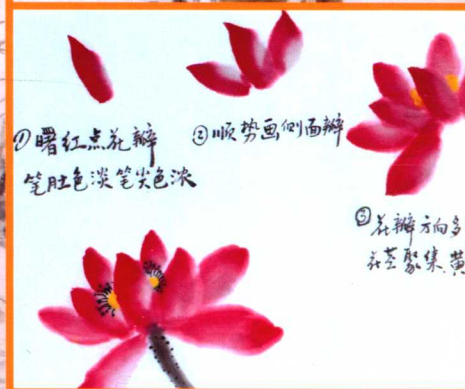 ①曙红点花瓣
笔肚色淡笔尖色浓
②顺势画侧面瓣
③花瓣方向多
花茎聚集.黄